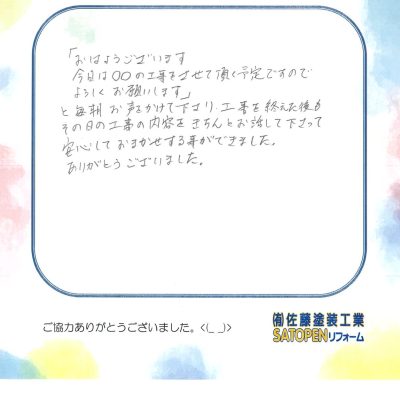 「おはようございます
今日は〇〇の工事をさせて頂く予定ですので
よろしくお願いします」
と毎朝お声をかけて下さり、工事を終えた後も
その日の工事の内容をきちんとお話して下さって
安心しておまかせする事ができました。
ありがとうございました。
ご協力ありがとうございました。<(_ _)>
㈲佐藤塗装工業
SATOPENリフォーム